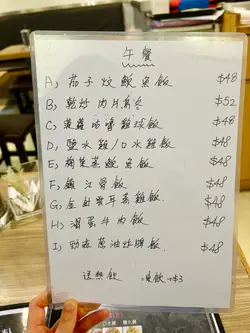 午餐
A, 茄子炆鯇魚飯 $48
B, 乾炒肉片烏冬 $52
C, 菠蘿咕嚕雞球飯 $48
D, 鹽水雞/口水雞飯 $48
E, 梅菜蒸鯇魚飯 $48
F, 鎮江骨飯 $48
G, 金針雲耳蒸雞飯 $48
H, 滑蛋牛肉飯 $48
I, 勁蒜蔥油炸脾飯 $48
送熱飲 凍飲+$3